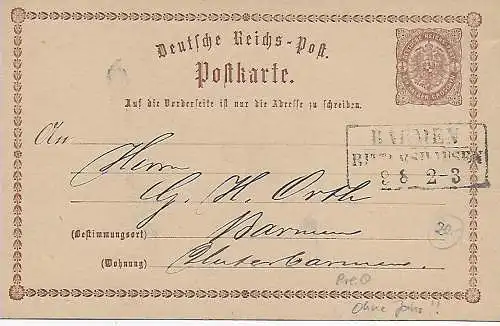 Deutsche Reichs-Post.
Postkarte.
Auf die Vorderseite ist nur die Adresse zu schreiben.
An
Herrn
G. H. Orth
BARMEN
RITTERSHAUSEN
9 8 2-3
Barmen
(Bestimmungsort)
20,-
(Wohnung)
Unterbarmen
Ohne Jahr!!